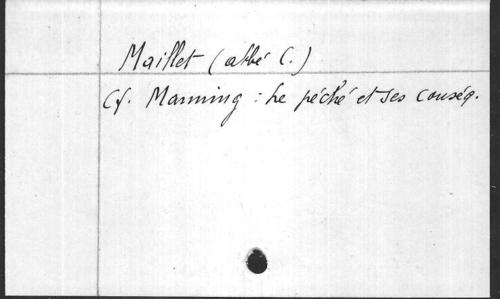 Maillet (abbé C.)
Cf. Manning : Le péché et ses conséq.